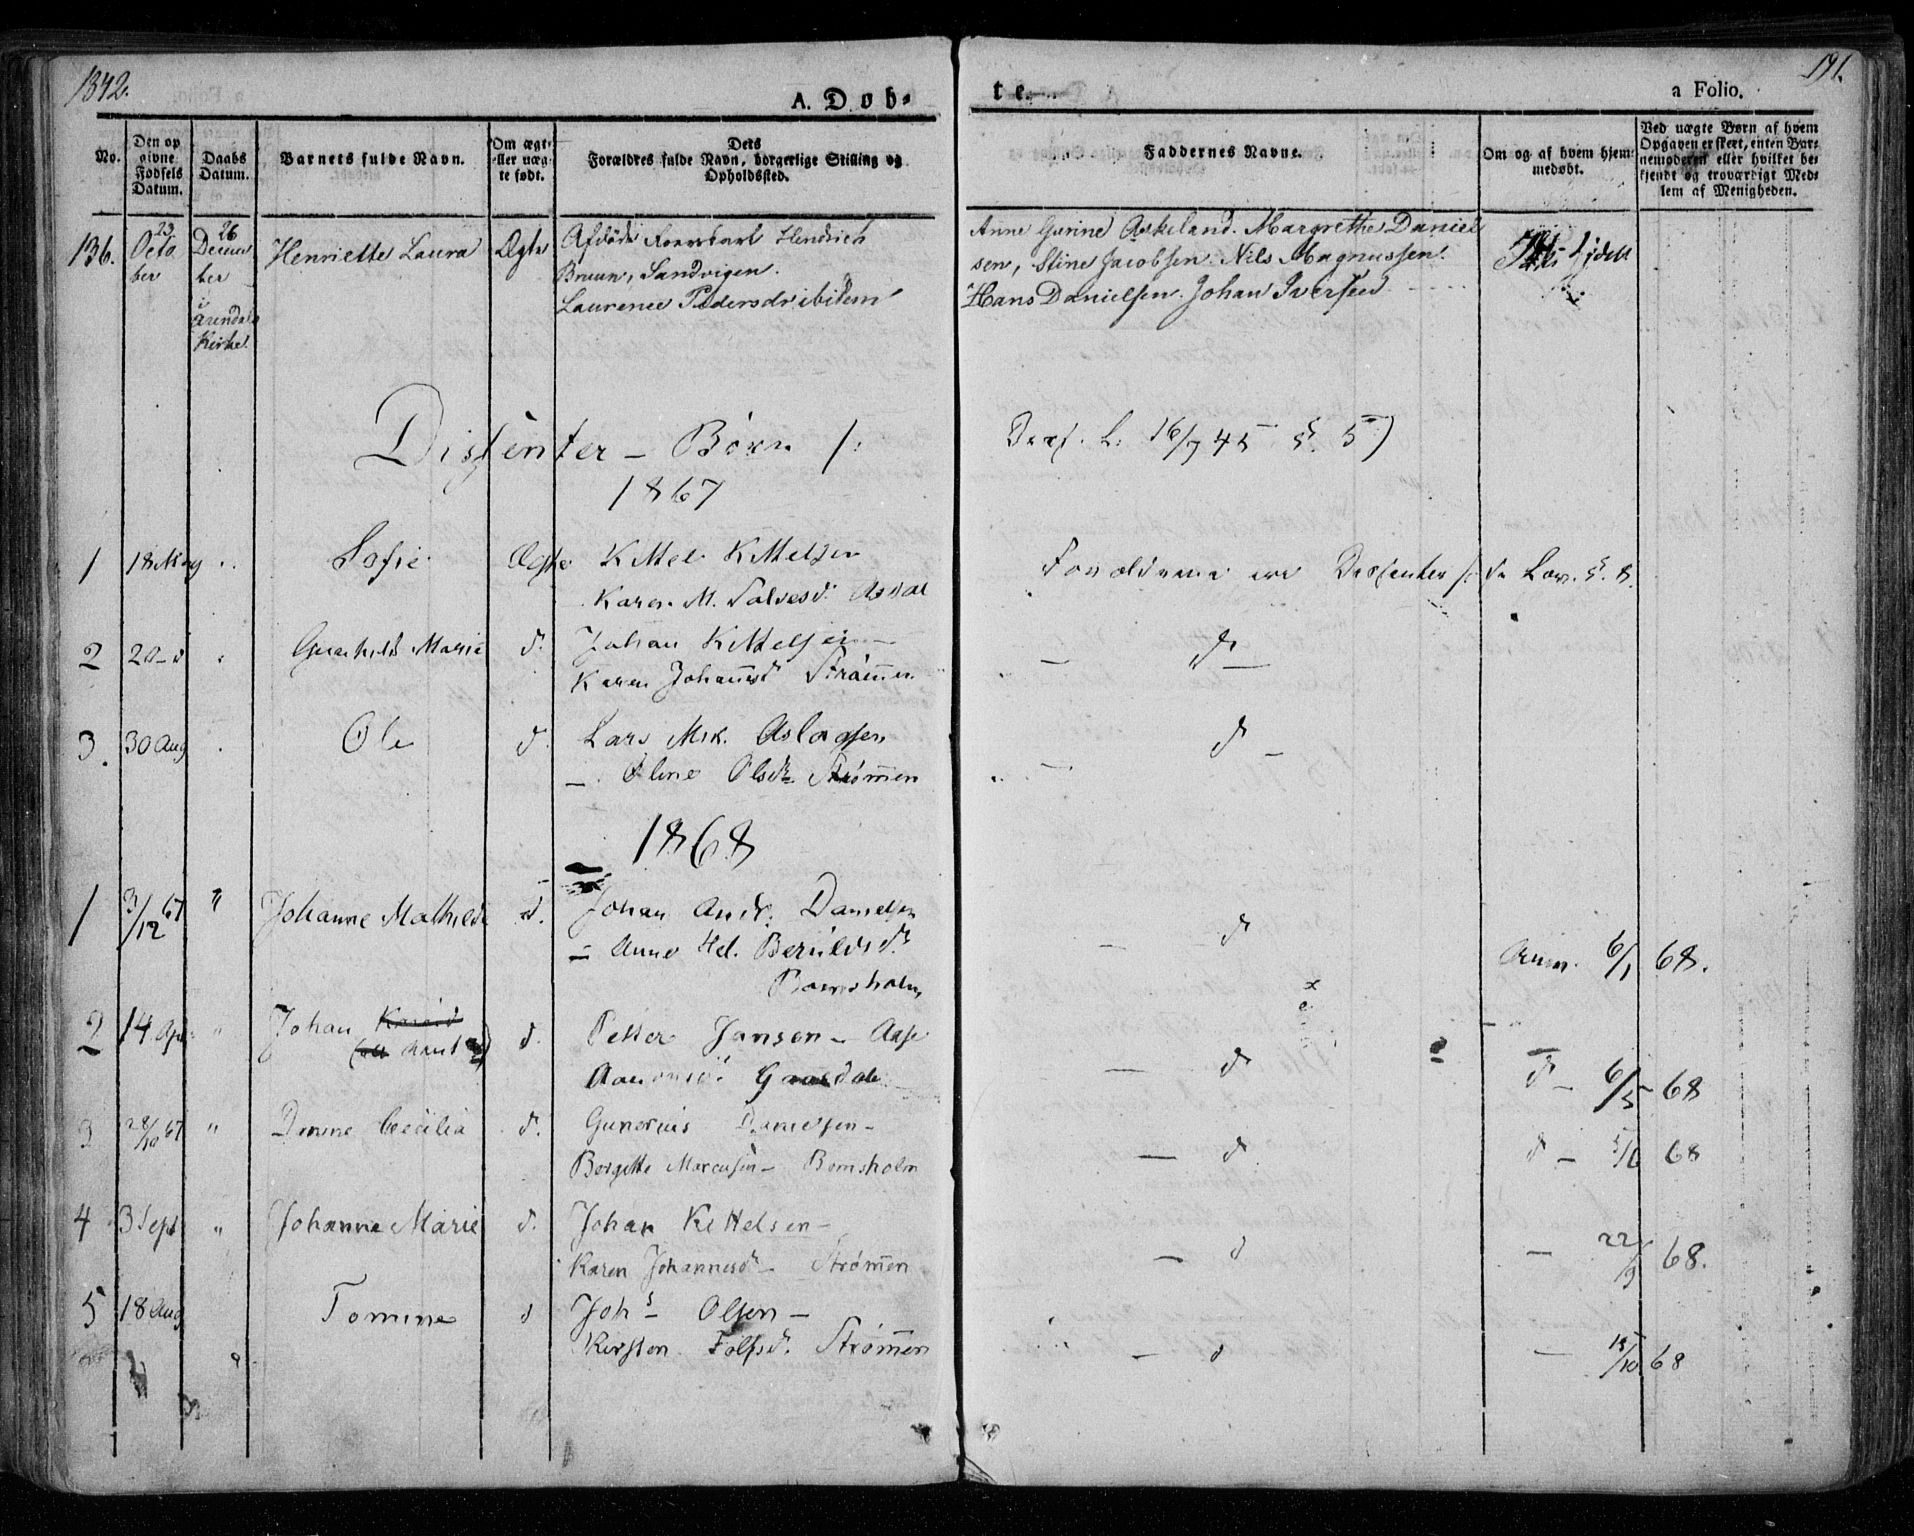 1842.
A. Dob-
te.
a Folio.
191.
No.
Den op
givne
Fødsels
Datum.
Daabs
Datum.
Barnets fulde Navn.
Om ægte
eller uæg-
te født.
Dets
Forældres fulde Navn, borgerlige Stilling og
Opholdssted.
Faddernes Navne.
Om og af hvem hjem-
medøbt.
Ved uægte Børn af hvem
Opgaven er skeet, enten Bar-
nemoderen eller hvilket be-
kjendt og troværdigt Med-
lem af Menigheden.
136.
23
Octo
ber
26
Decem
ber
i
Arendals
Kirke
Henriette Laura
Ægte
Afdøde Hendrich
Bruun, Sandvigen.
Laurence Pedersdr ibidem
Anne Gurine Askeland. Margrethe Daniel
sen, Stine Jacobsen. Nils Magnussen.
Hans Danielsen. Johan Iversen
Dissenter - Børn /:
L. 16/7 45 §. 5)
1867
1 18 May Sofie Ægte Kittel Kittelsen
Karen M. Salvesd. Asdal
Forældrene ere Dissenter /: Lov. §. 8.
2 20 - d Gunhild Marie d. Johan Kittelsen -
Karen Johannsd Strømmen
- d -
3. 30 Aug Ole d. Lars Mik. Aslagsen
- Oline Olsdr Strømmen
- d -
1868
1 3/12 67 " Johanne Mathilde d. Johan Andr. Danielsen
- Anne Hel. Beruldsdr
Bomsholm
- d
Anm. 6/1 68.
2 14 Apr " Johan d. Petter Jansen - Aase
Aanonsd Gaasdal
- d
d - 6/5 68
3 28/10 67 " Cecilia d. Gunerius Danielsen -
Borgitte Marcussen - Bomsholm
- d
d - 5/6 68
4 3 Sept " Johanne Marie d. Johan Kittelsen -
Karen Johannesd - Strømmen
- d
- 22/9 68.
5 18 Aug Tomine d Johs - Olsen -
Kirsten Folfsd. Strømmen
- d
- 15/10 68